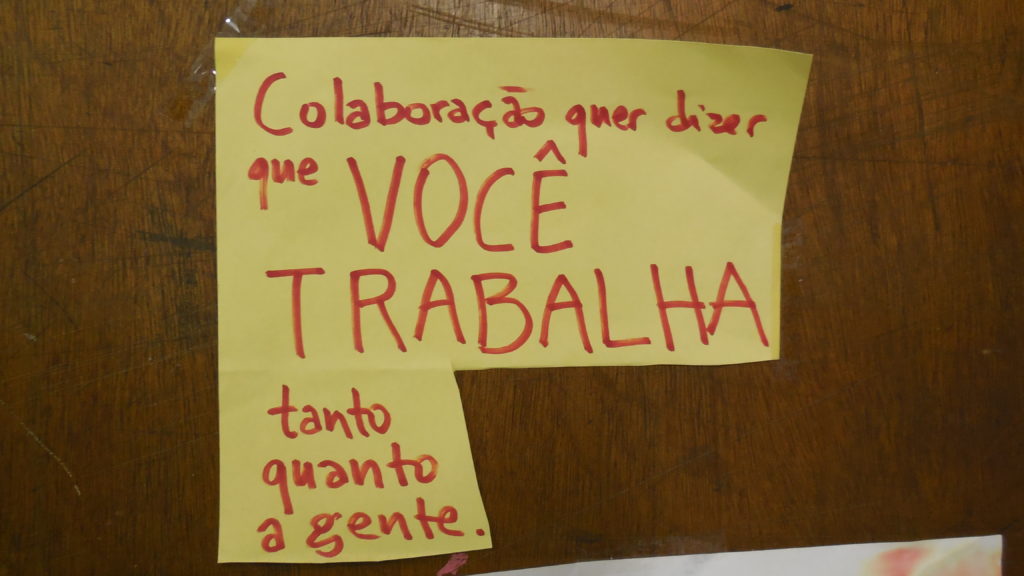 Colaboração quer dizer
que VOCÊ
TRABALHA
tanto
quanto
a gente.